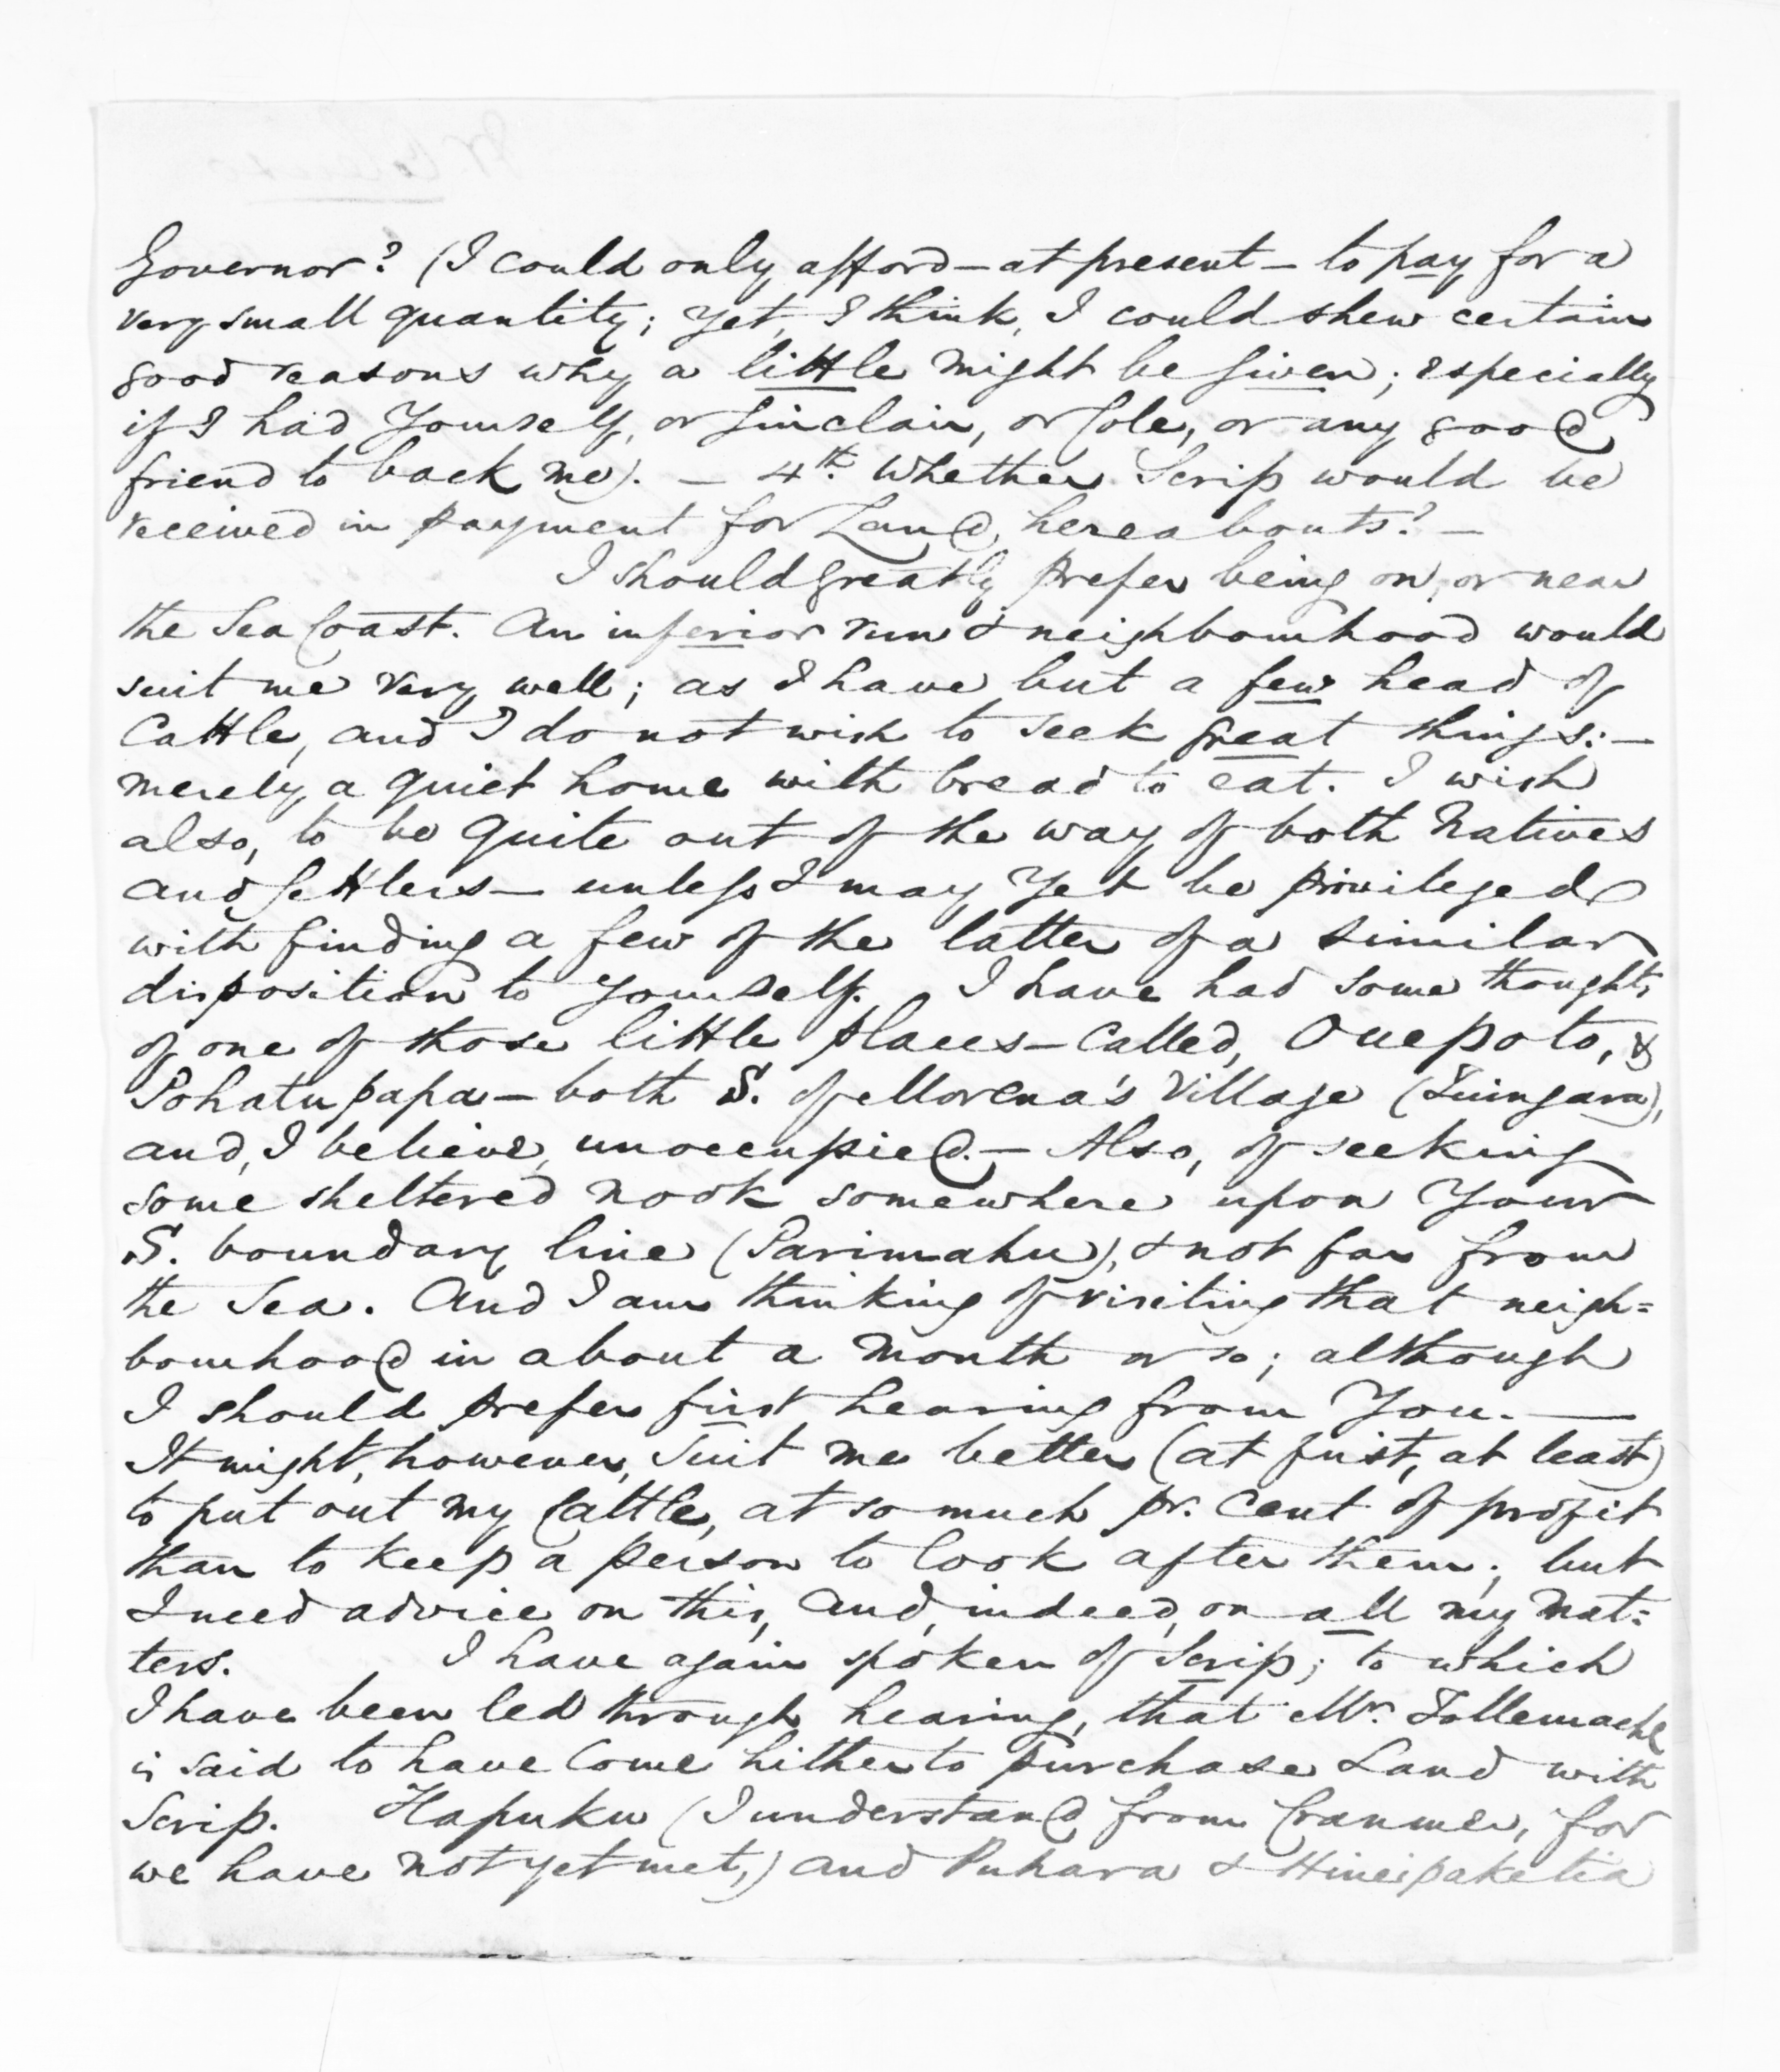 Governor? (I could only afford—at present—to pay for a
very small quantity; yet, I think, I could shew certain
good reasons why a little might be given; especially
if I had Yourself, or Sinclair, or Cole, or any good
friend to back me). — 4th. Whether Scrip would be
received in payment for Land hereabouts? —
I should greatly prefer being on, or near
the Sea Coast. An inferior run & neighbourhood would
suit me very well; as I have but a few head of
Cattle, and I do not wish to seek great things:—
merely a quiet home with bread to eat. I wish
also, to be quite out of the way of both Natives
and Settlers— unless I may yet be privileged
with finding a few of the latter of a similar
disposition to Yourself. I have had some thoughts
of one of those little places—called, Ouepoto, &
Pohatupapa— both S. of Morena's Village (Tuingara),
and, I believe, unoccupied.— Also, of seeking
some sheltered nook somewhere upon Your
S. boundary line (Parimahu), & not far from
the Sea. And I am thinking of visiting that neigh=
bourhood in about a month or so; although
I should prefer first hearing from You. —
It might, however, suit me better (at first, at least)
to put out my Cattle, at so much pr. Cent of profit
than to keep a person to look after them; but
I need advice on this, and, indeed, on all my mat=
ters. I have again spoken of Scrip; to which
I have been led through hearing, that Mr. Tollemache
is said to have come hither to purchase Land with
Scrip. Hapuku (I understand from Cranmer, for
we have not yet met,) and Puhara & Hineipaketia